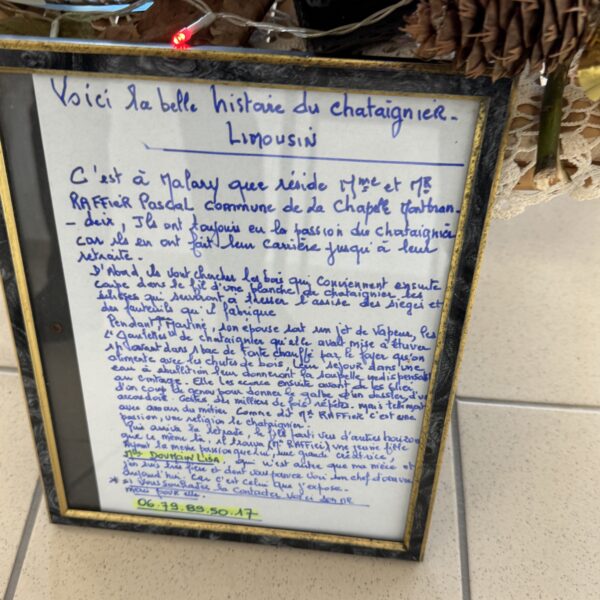 Voici la belle histoire du chataignier
LIMOUSIN
C'est à Malary que réside Mme et MR
RAFFIER Pascal commune de La Chapelle Montbran-
-deix, Ils ont toujours eu la passion du chataignier
car ils en ont fait leur carrière jusqu'à leur
retraite.
D'abord, ils vont chercher les bois qui conviennent ensuite
coupe dans le fil d'une planche de chataignier les
éclisses qui serviront à tresser l'assise des sièges et
des fauteuils qu'il fabrique
Pendant Martine, son épouse sort un jet de vapeur, les
de chataignier qu'elle avait mise à étuver
dans 1 bac de fonte chauffé par le foyer qu'on
alimente avec les chutes de bois. Leur séjour dans une
eau à ébullition leur donneront la souplesse indispensable
au cintrage. Elle les ensuite avant de les plier
d'un coup de genou pour donner le galbe d'un dossier, d'un
accoudoir. Gestes des milliers de fois répétés. mais
avec amour du métier. Comme dit MR RAFFIER c'est une
passion une religion le chataignier.
Qui arrive la retraite, le fil parti vers d'autres horizons
que ce même là, il trouva (MR RAFFIER) une jeune fille
ayant la même passion que lui, une grande créatrice
DOUMAIN LISA, qui n'est autre que ma nièce et
j'en suis très fière et dont vous pouvez voir son chef d'œuvre
aujourd'hui car c'est celui que j'expose.
* si vous souhaitez la contacter voici son NR
merci pour elle.
06.79.89.50.17